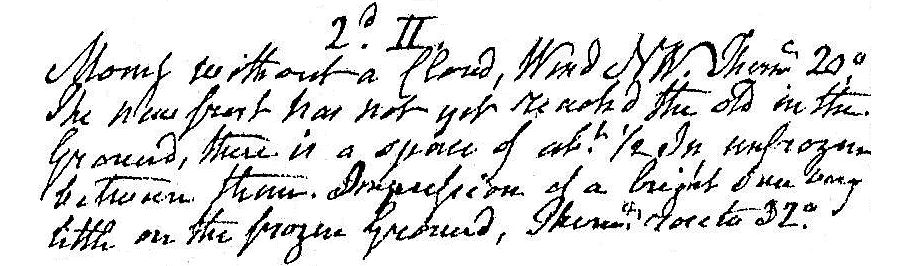 2d. II.
Morng without a Cloud, Wind NW. Thermr 20°.
The new frost has not yet reached the old in the
Ground, there is a space of abt. 1/2 In, unfrozen
between them. Impression of a bright Sun very
little on the frozen Ground, Thermr. rose to 32°.